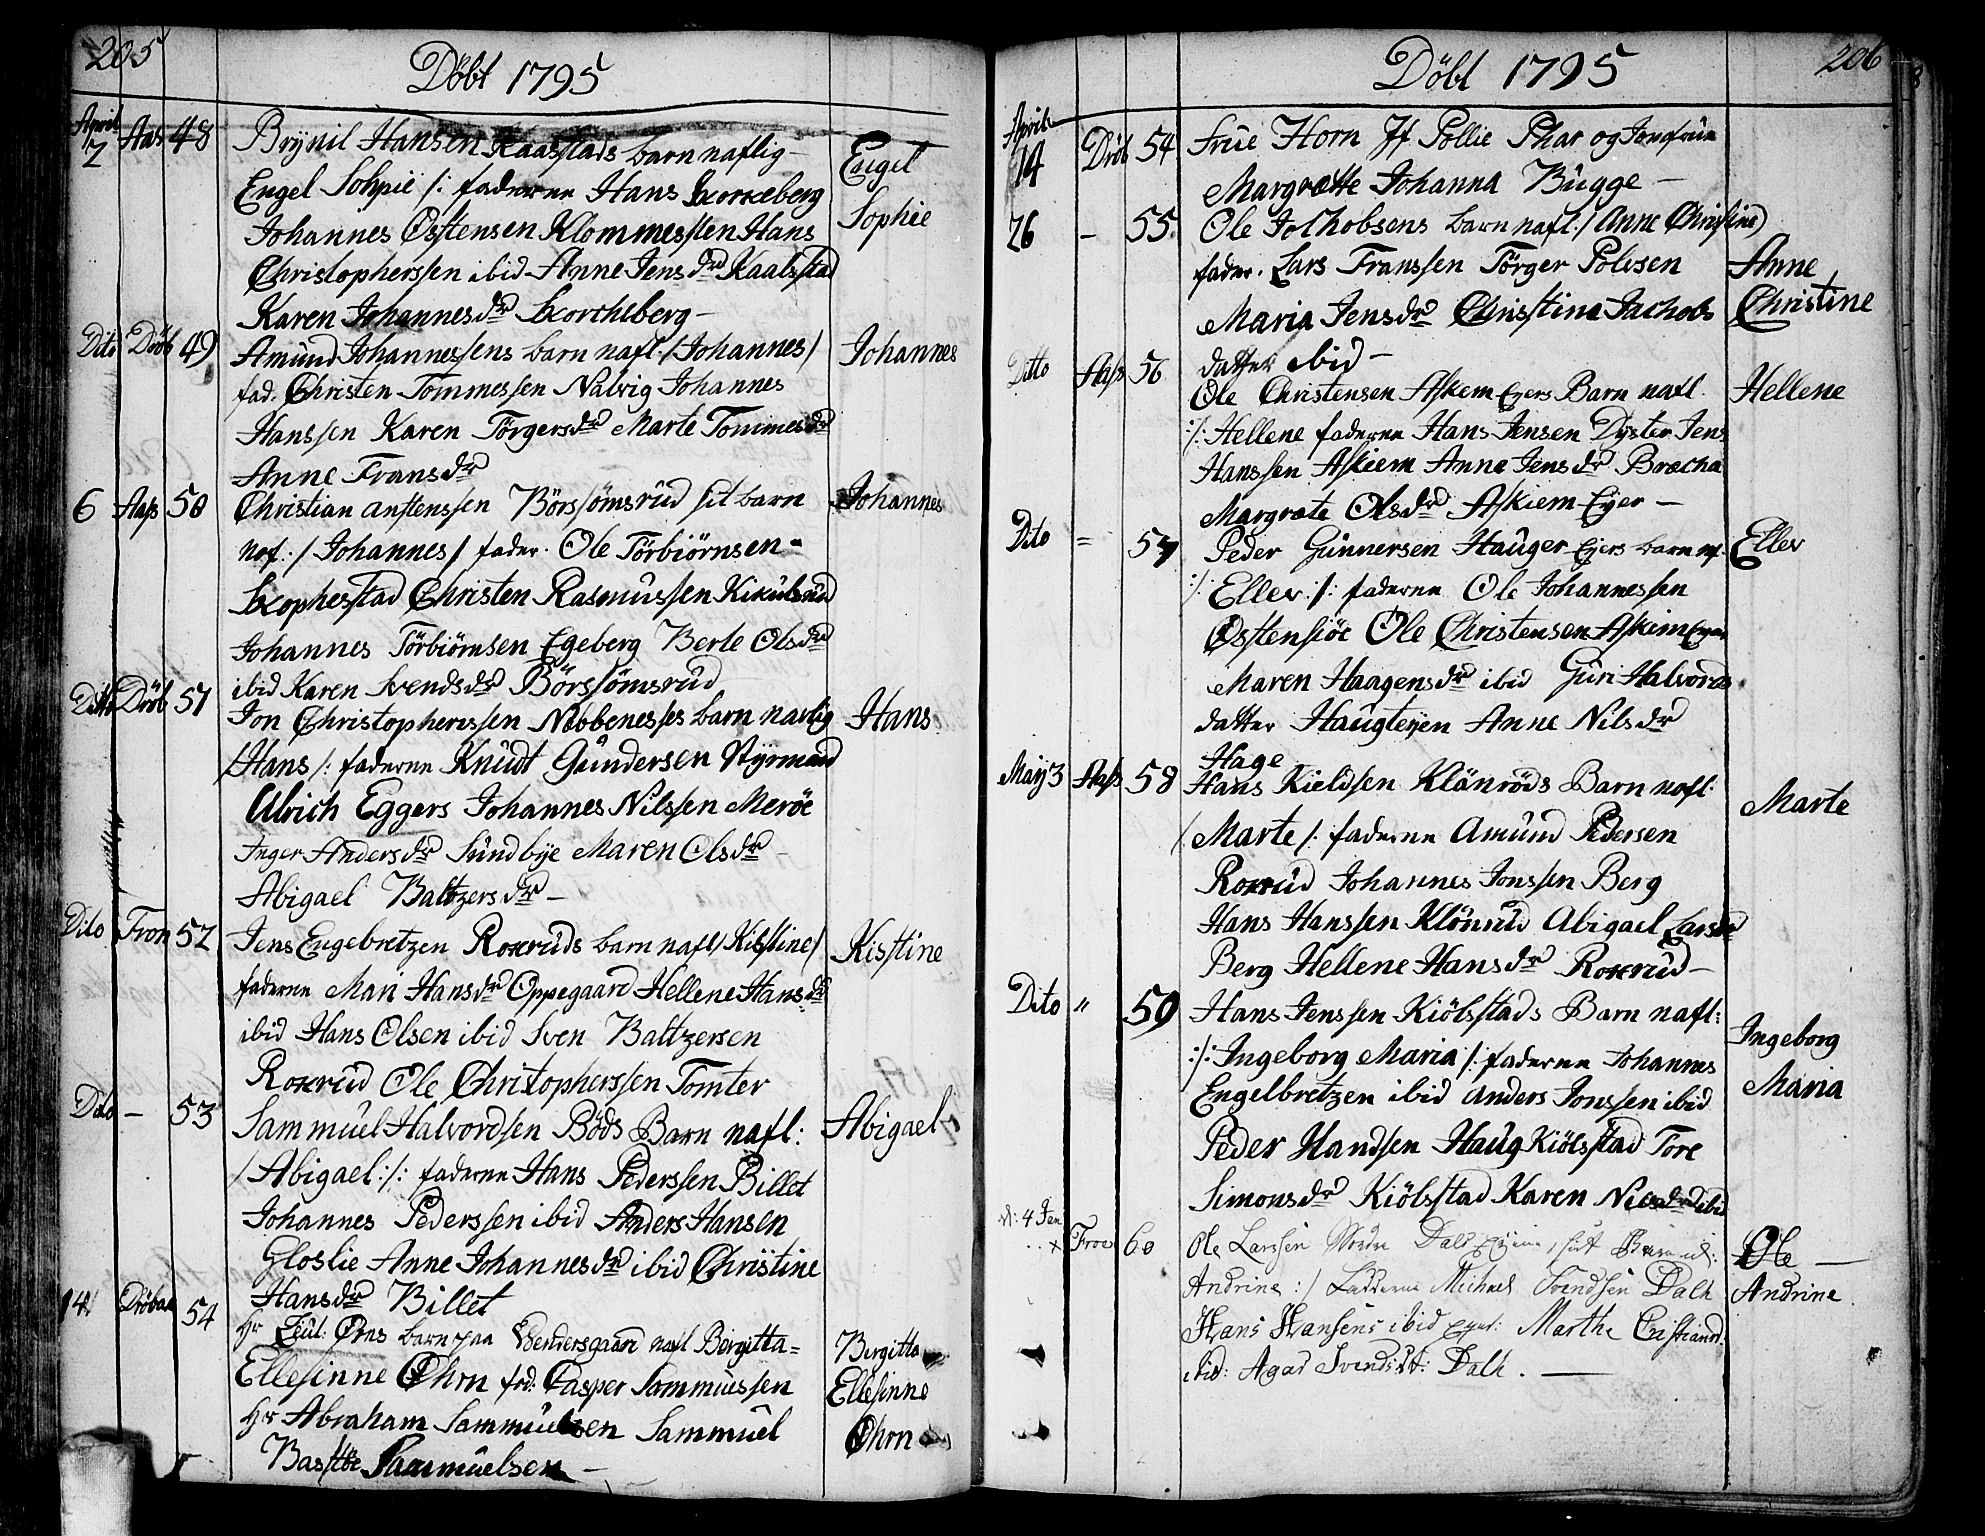 205
Döbt 1795
April
2 Aas 48 Brÿnil Hansen Kaasstads barn naflig Engel
Engel Sohpie /: faderne Hans Skorkeberg
Johannes Osstensen Klommessten Hans Sophie
Christopherssen ibid Anne Jens dr Kaalsstad
Karen Johannes dr Skorchlberg
Dito Dröb 49 Amund Johannessens barn nafl. /Johannes/ Johannes
fad. Christen Tommessen Nalvig Johannes
Hanssen Karen Törgers dr Marte Tommes dr
Anne Frans dr
6 Aass 50 Christian anstenssen Börssömsrud sit barn Johannes
naf. /Johannes/ fader. Ole Törbiörnsen
Skophesstad Christen Rasmussen Kikulsrud
Johannes Törbiörnsen Egeberg Berte Ols dr
ibid Karen Svends dr Börssömsrud
Ditto Dröb 51 Jon Christopherssen Nebbenesses barn navlig Hans
/Hans /: faderne Knudt Gundersen Styrmand
Ulrich Eggers Johannes Nilssen Meröe
Inger Anders dr Sundbÿe Maren Ols dr
Abigael Baltzers dr
Dito Fron 52 Jens Engebretzen Roxruds barn nafl /Kisstine/ Kisstine
faderne Mari Hans dr Oppegaard Hellene Hans dr
ibid Hans Olsen ibid Sven Baltzersen
Roxrud Ole Christopherssen Tomter
Dito — 53 Sammuel Halvordsen Böds Barn nafl: Abigael
/Abigael :/: faderne Hans Pederssen Billet
Johannes Pederssen ibid Anders Hansen
Gloslie Anne Johannes dr ibid Christine
Hans dr Billet
14 Dröbak 54 Hr Leut: Örns barn paa Vendersgaard nafl Bergitta= Bergitta
Ellesinne Öhrn fad: Casper Sammuessen Ellesinne
Hr Abraham Sammuelsen Sammuel Öhrn
Basstöe Sammuelsen
206
Döbt 1795
April
14 Dröb 54 Frue Horn Jf Pollie Phar og Jomfrue
Margrætte Johanna Bugge
26 — 55 Ole Jolhobsens barn nafl. / Anne Christine)
fader. Lars Franssen Törger Polvsen Anne
Maria Jens dr Christina Jachobs Christine
datter ibid
Ditto Aass 56 Ole Christensen Askem Eyers Barn nafl. Hellene
:/: Hellene faderne Hans Jensen Dyster Jens
Hanssen Askiem Anne Jens dr Brecha
Margrate Ols dr Askiem Eyer
Dito = 57 Peder Gunnersen Hauger Eyers barn nf. Ellev
:/: Ellev :/: faderne Ole Johannessen
Osstensiöe Ole Christensen Askiem Eyer
Maren Haagens dr ibid Guri Halvords
datter Haugteÿen Anne Nils dr
Hage
Maÿ 3 Aass 58 Hans Kieldsen Klönröds Barn nafl. Marte
/. Marte /: faderne Amund Pedersen
Roxrud Johannes Jonssen Berg
Hans Hanssen Klönrud Abigael Lars dr
Berg Hellene Hans dr Roxrud
Dito " 59 Hans Jenssen Kiölsstads Barn nafl: Ingeborg
:/: Ingeborg Maria /: faderne Johannes Maria
Engelbretzen ibid anders Jonssen ibid
Peder Handsen Haug Kiölsstad Tore
Simons dr Kiölsstad Karen Niels dr ibid
d: 4 Jan Froe 60 Ole Larssen Nordre Dals eyerne, födt Barn nl: Ole
Andrine :/ Fadderne Michael Svendsen Dalh Andrine
Hans Hansens ibid eyer: Marthe Cristiansd:
ibid: Agar Svendsdt: Dalh.